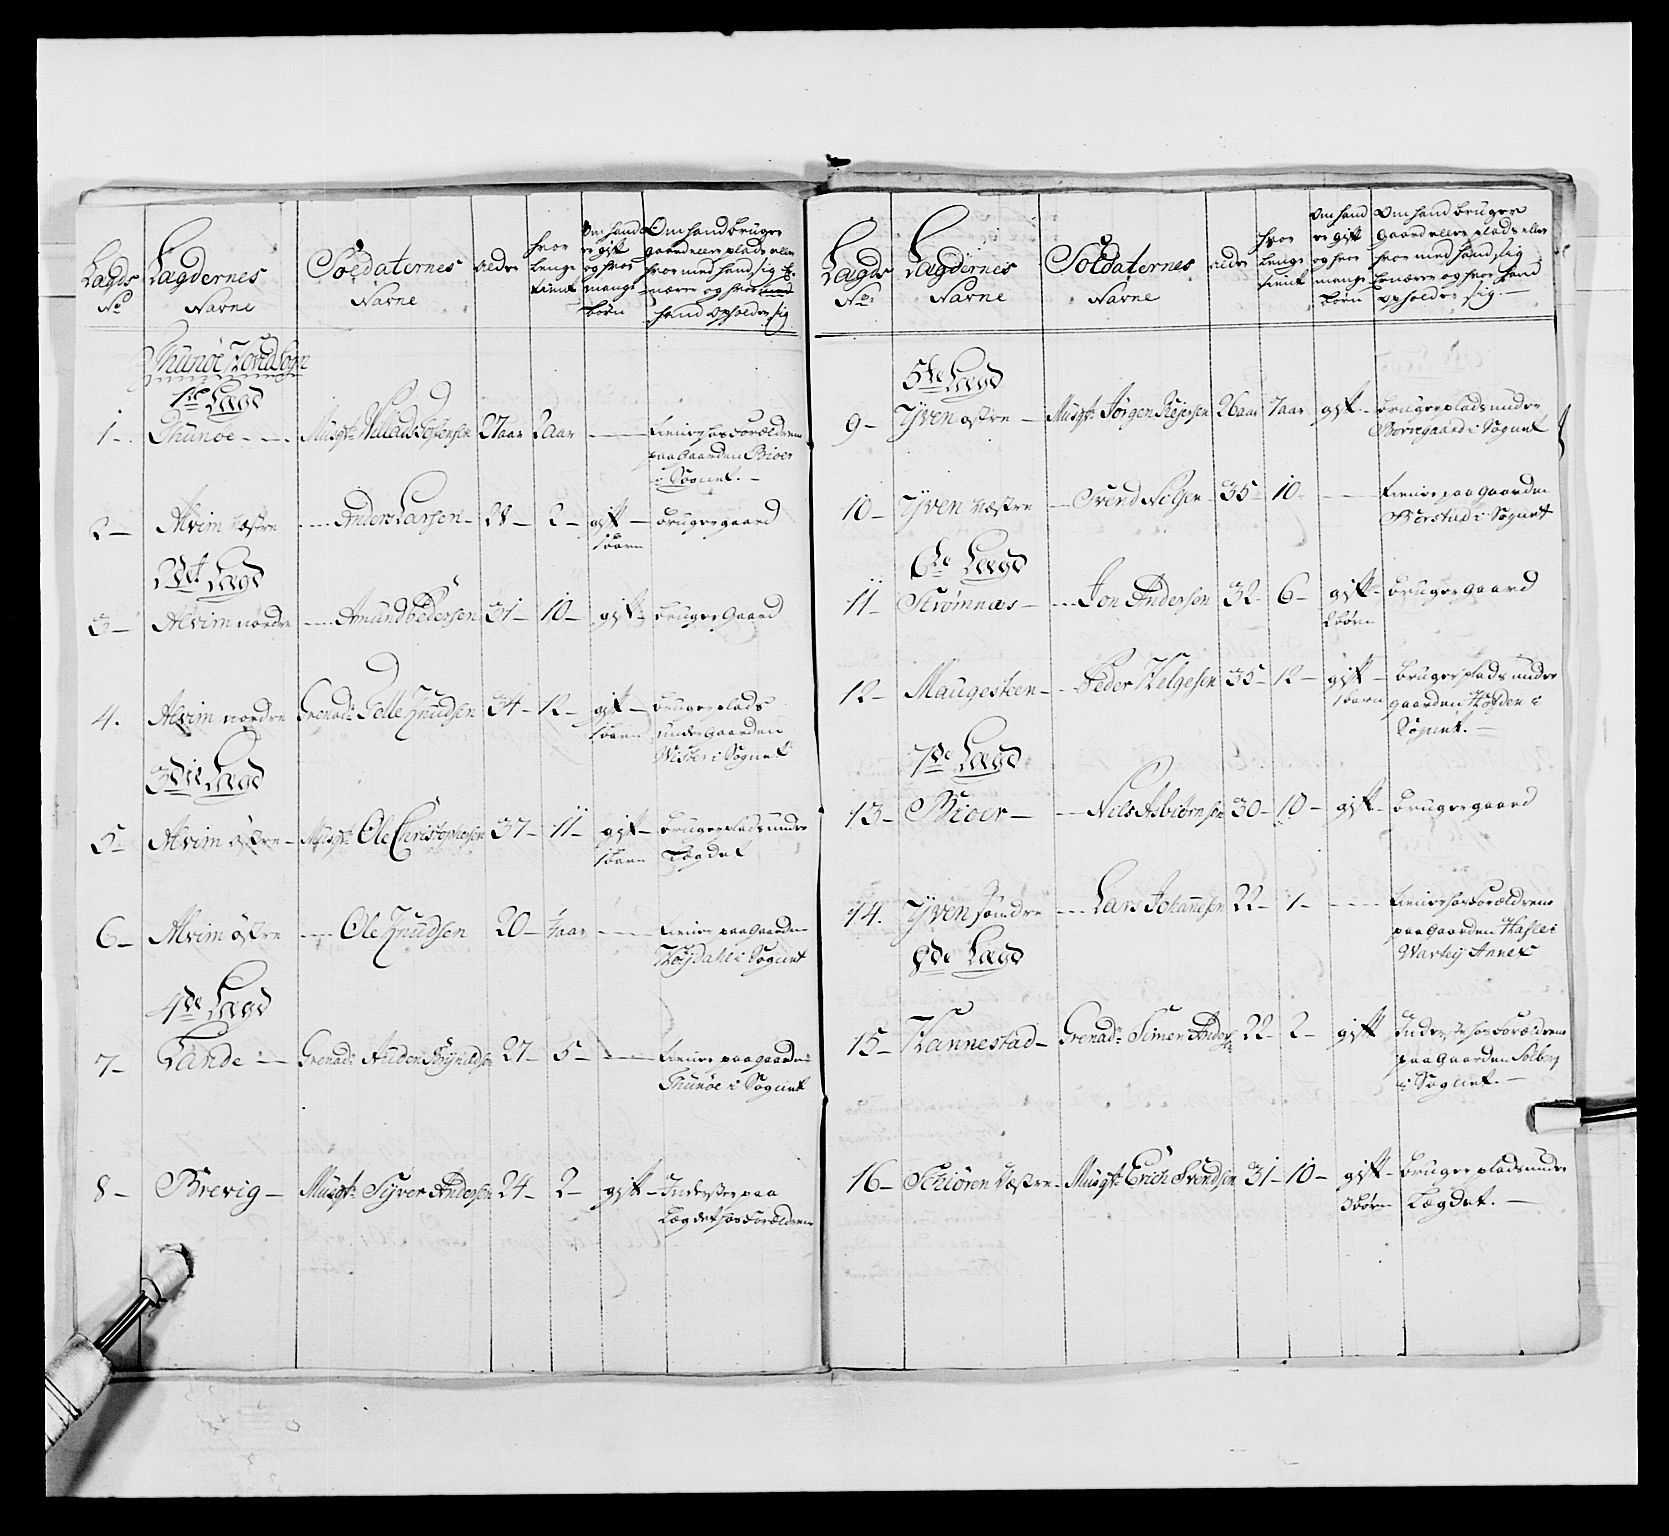 Lægds No
Lægdernes Navne
Soldaternes Navne
alder
hvor lenge tient
Om hand er gift og hvor mange børn
Om hand bruger gaard eller plads eller hvor med hand sig ernærer og hvor hand opholder sig
Thunøe Hovedsogn
1te Lægd
1 - Thunøe - Musqt: Willads Ofensen 27 aar 2 aar - tiener hos Forældrene
paa Gaarden Bioer
i Sognet. -
2 - Alvim Vestre - Anders Larsen - 28 - 2 - gift - bruger gaard
1 barn
2det Lægd
3 - Alvim nordre - Amund Pedersen 31 - 10 - gift - bruger Gaard
4. Alvim nordre Grenad: Tolle Knudsen 34 - 12 - gift - bruger plads
1 barn under Gaarden
i Sognet
3die Lægd
5 - Alvim østre - Musqt: Ole Christophersen 37 - 11 - gift - bruger plads under
1 barn Lægdet
6 - Alvim østre - Ole Knudsen 20 - 1/2 aar - tiener paa Gaarden
Høydahl i Sognet
4de Lægd
7 - Lande - Grenad: Auden Brynildsen 27 - 5 - tiener paa gaarden
Thunøe i Sognet
8 - Brevig - Musqt: Syver Andersen 24 - 2 - gift - Inderster paa
Lægdet hos Forældrene
Lægds No:
Lægdernes Navne
Soldaternes Navne
alder
hvor lenge tient
Om hand er gift og hvor mange børn
Om hand bruger Gaard eller plads eller hvor med hand sig ernærer og hvor hand opholder sig. -
5te Lægd
9 - Yven østre - Musqt: Jörgen Rejersen 26 aar 7 aar gift - bruger plads under
Borregaard i Sognet
10 - Yven Vestre - Svend Nilsen - 35 - 10 - tiener paa Gaarden
Borstad i Sognet
6te Lægd
11 - Strømnæs - Jon Andersen 32 - 6 - gift - bruger gaard
2 børn
12 - Maugesteen - Peder Helgesen 35 - 12 - gift - bruger plads under
1 barn gaarden Hofden i
Sognet. -
7de Lægd
13 - Bioer - Nels Asbiörnsen 30 - 10 - gift - bruger gaard
14. Yven søndre - Lars Johannsen 22 - 1 - tiener hos Forældrene
paa Gaarden Hasle i
Warteig Annex
8de Lægd
15 - Hannestad - Grenad: Simen Anders: 22 - 2 - gift Inderste hos Forældrene
paa Gaarden Solberg
i Sognet. -
16 - Schiören Vestre - Musqt: Erich Svendsen 31 - 10 - gift - bruger plads under
3 børn Lægdet. -